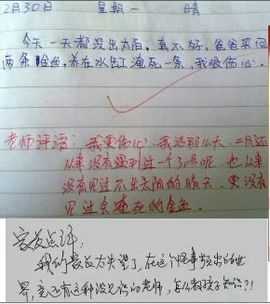 2月30日 星期一 晴
今天一天都没出太阳,真不好,爸爸买回
两条金鱼,养在水缸淹死一条,我很伤心。
老师评语:我更伤心,我活那么大,二月还
从来没有碰到过一个30号呢,也从来
没有见过不出太阳的晴天,更没有
见过会淹死的金鱼。
家长点评:
我们家长太失望了,在这个怪事频出的世
界,竟还有这种没见识的老师,怎么教孩子知识?!